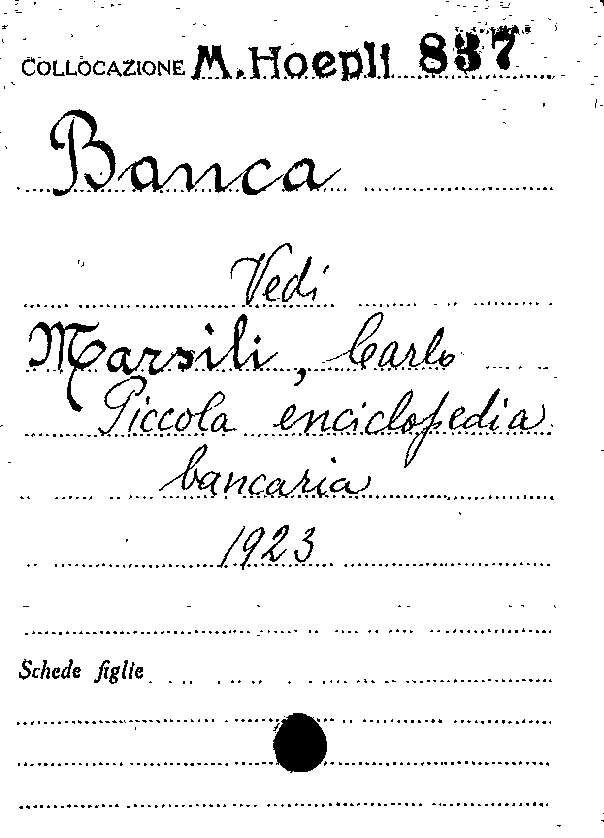 COLLOCAZIONE M. Hoepli 837
Banca
Vedi
Marsili, Carlo
Piccola enciclopedia
bancaria
1923
Schede figlie